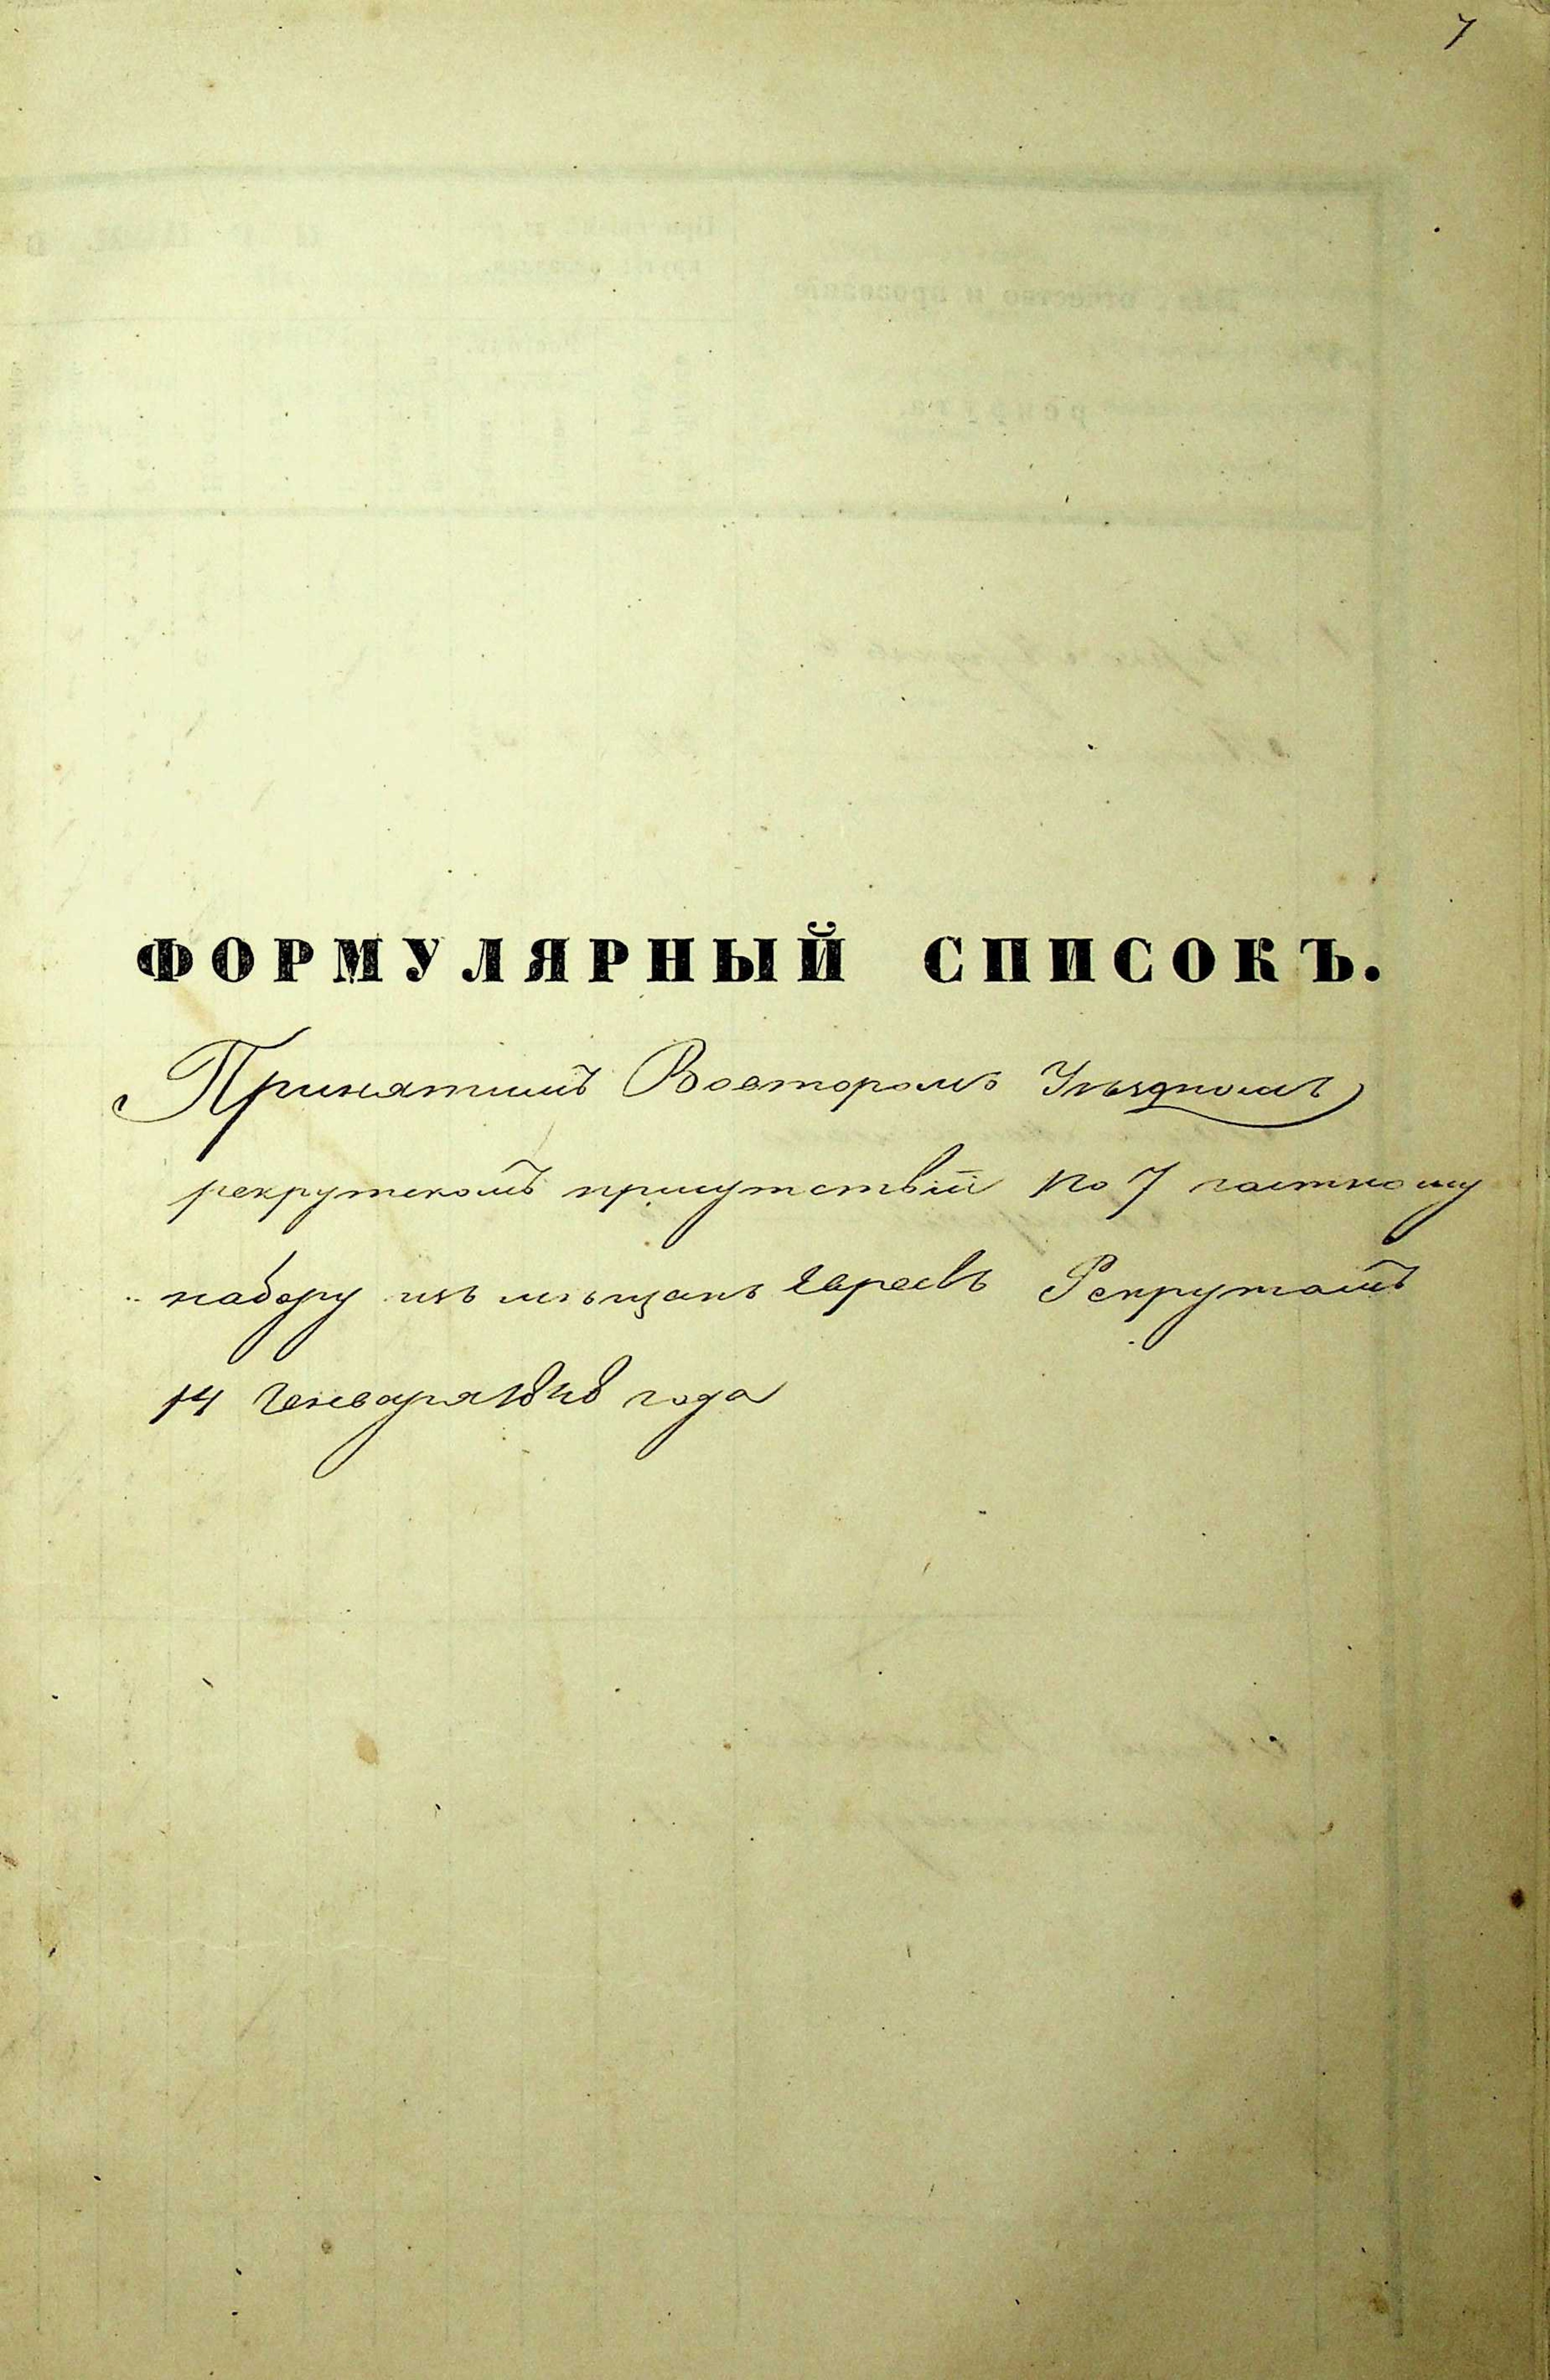 7
ФОРМУЛЯРНЫЙ СПИСОКЪ.
Принятымъ Во второмъ Уѣздномъ
рекрутскомъ присутствіи по 7 частному
набору изъ мѣщанъ Евреевъ Рекрутамъ
14 Генваря 1848 года